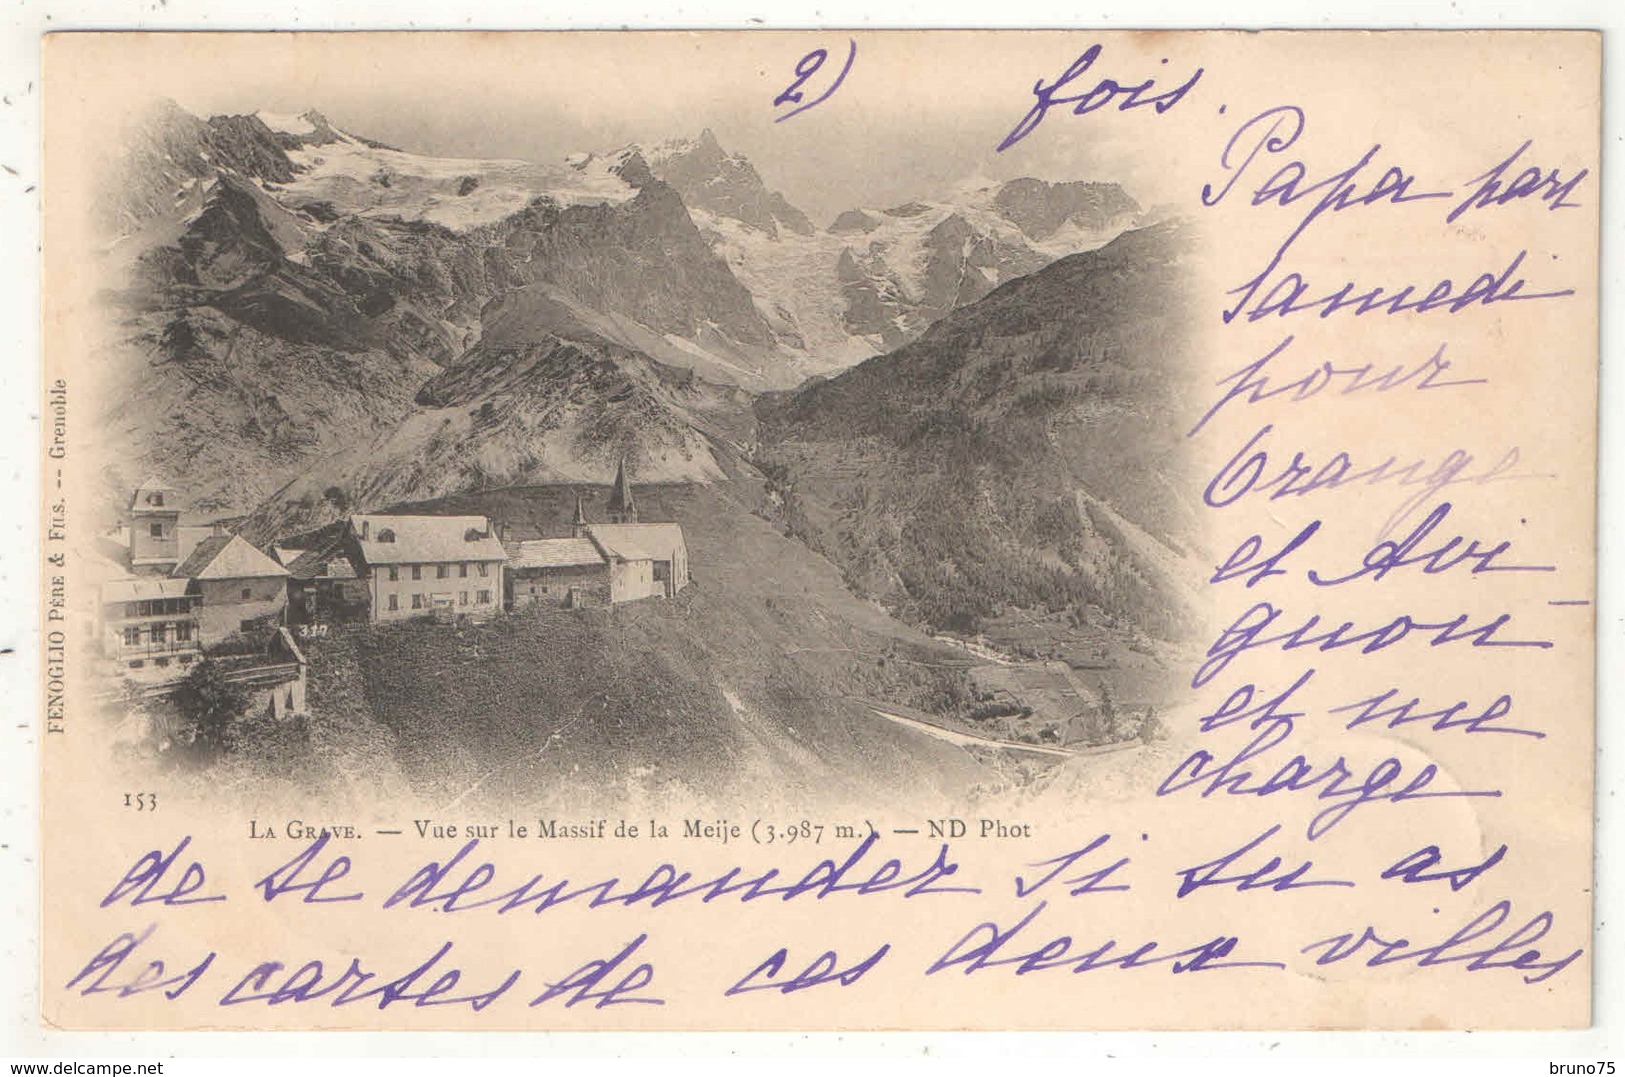 2) fois.
Papa part
samedi
pour
Orange
et Avi-
gnon
et me
charge
de te demander si tu as
des cartes de ces deux villes
FENOGLIO PÈRE & FILS. -- Grenoble
317
153
LA GRAVE. — Vue sur le Massif de la Meije (3.987 m.). — ND Phot
delcampe.net
bruno75